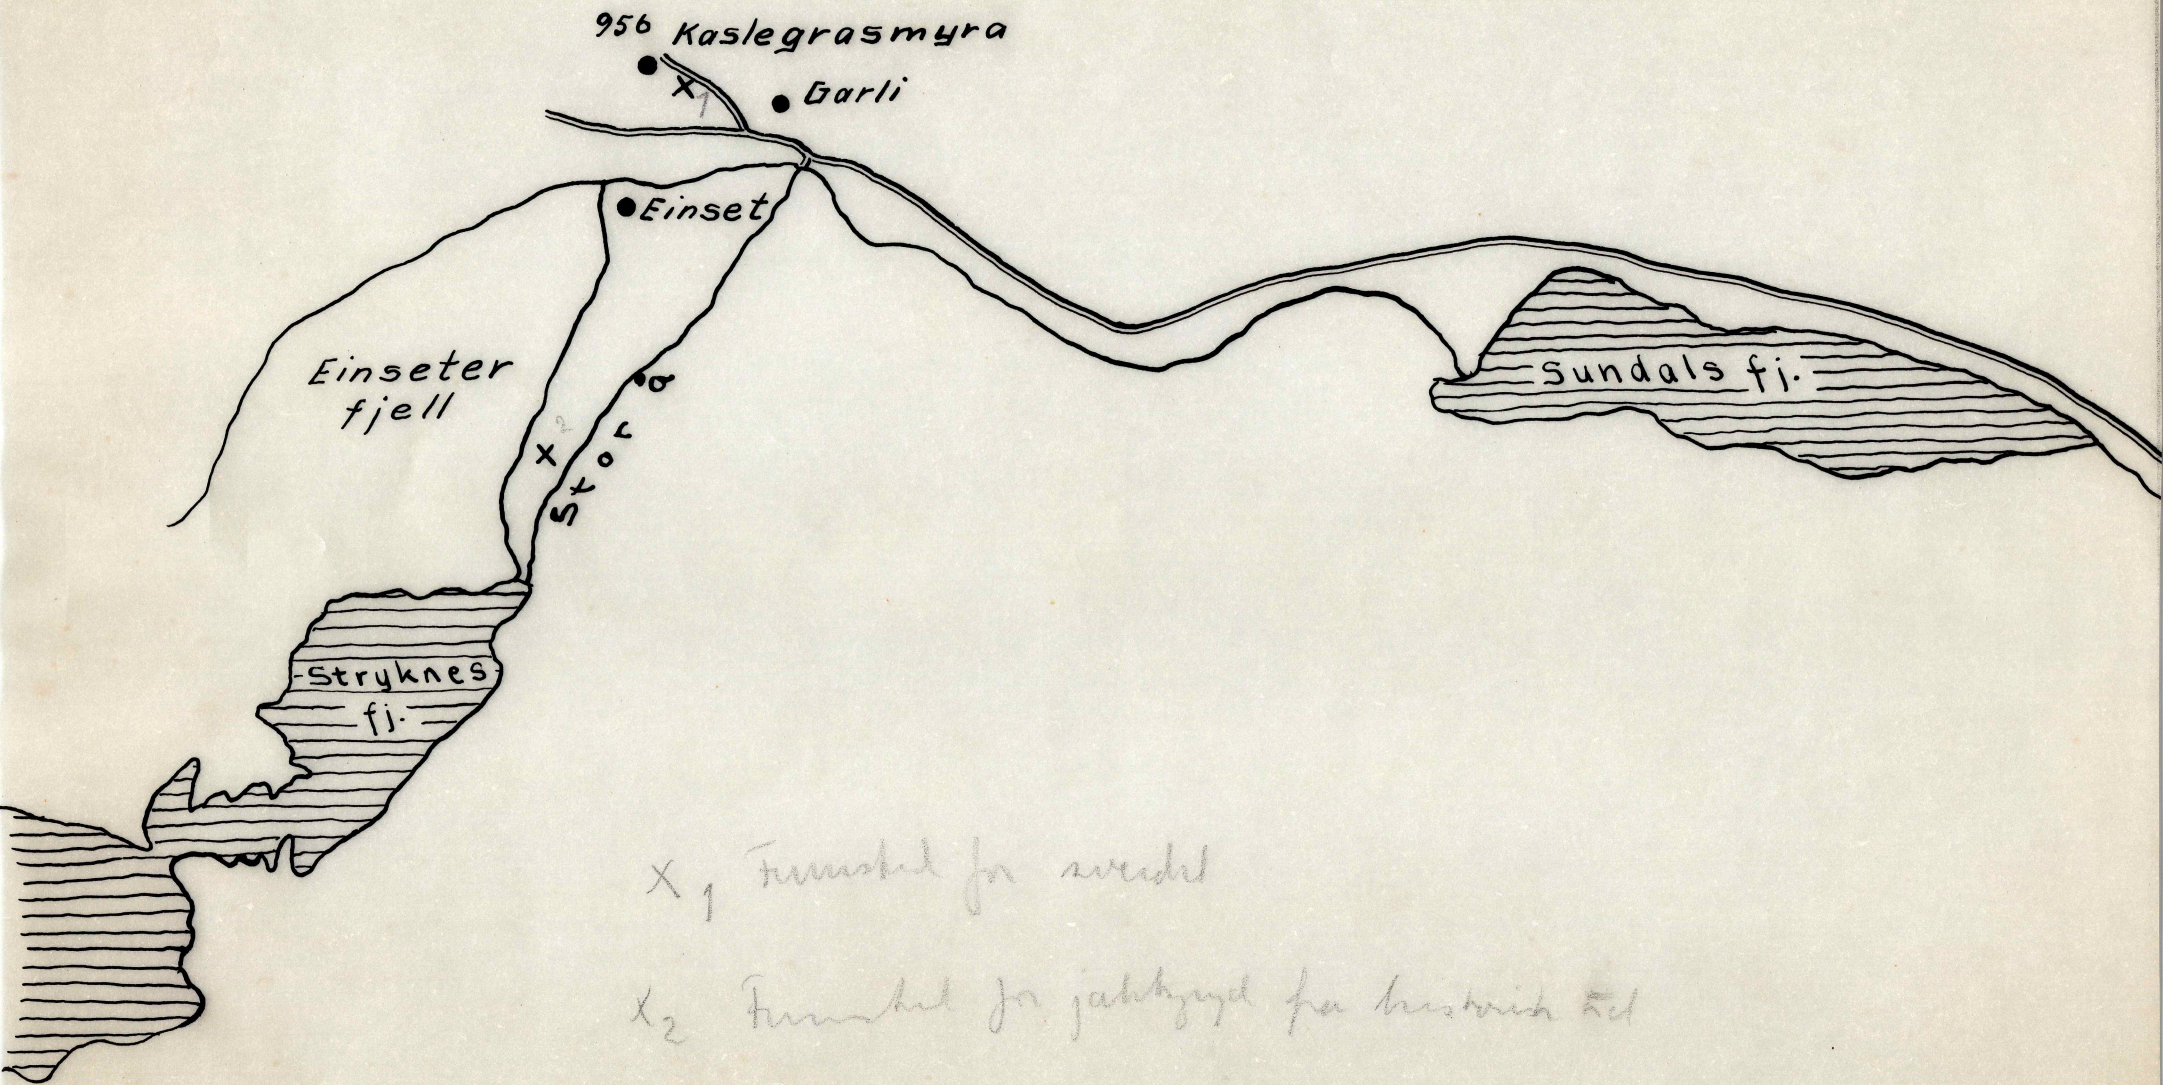 956 Kaslegrasmyra
x 1
Garli
Einset
Einseter
fjell
Storå
x 2
Sundals fj.
Stryknes
fj.
x 1 Funnsted for sverdet
x 2 Funnsted for jaktspyd fra historisk tid